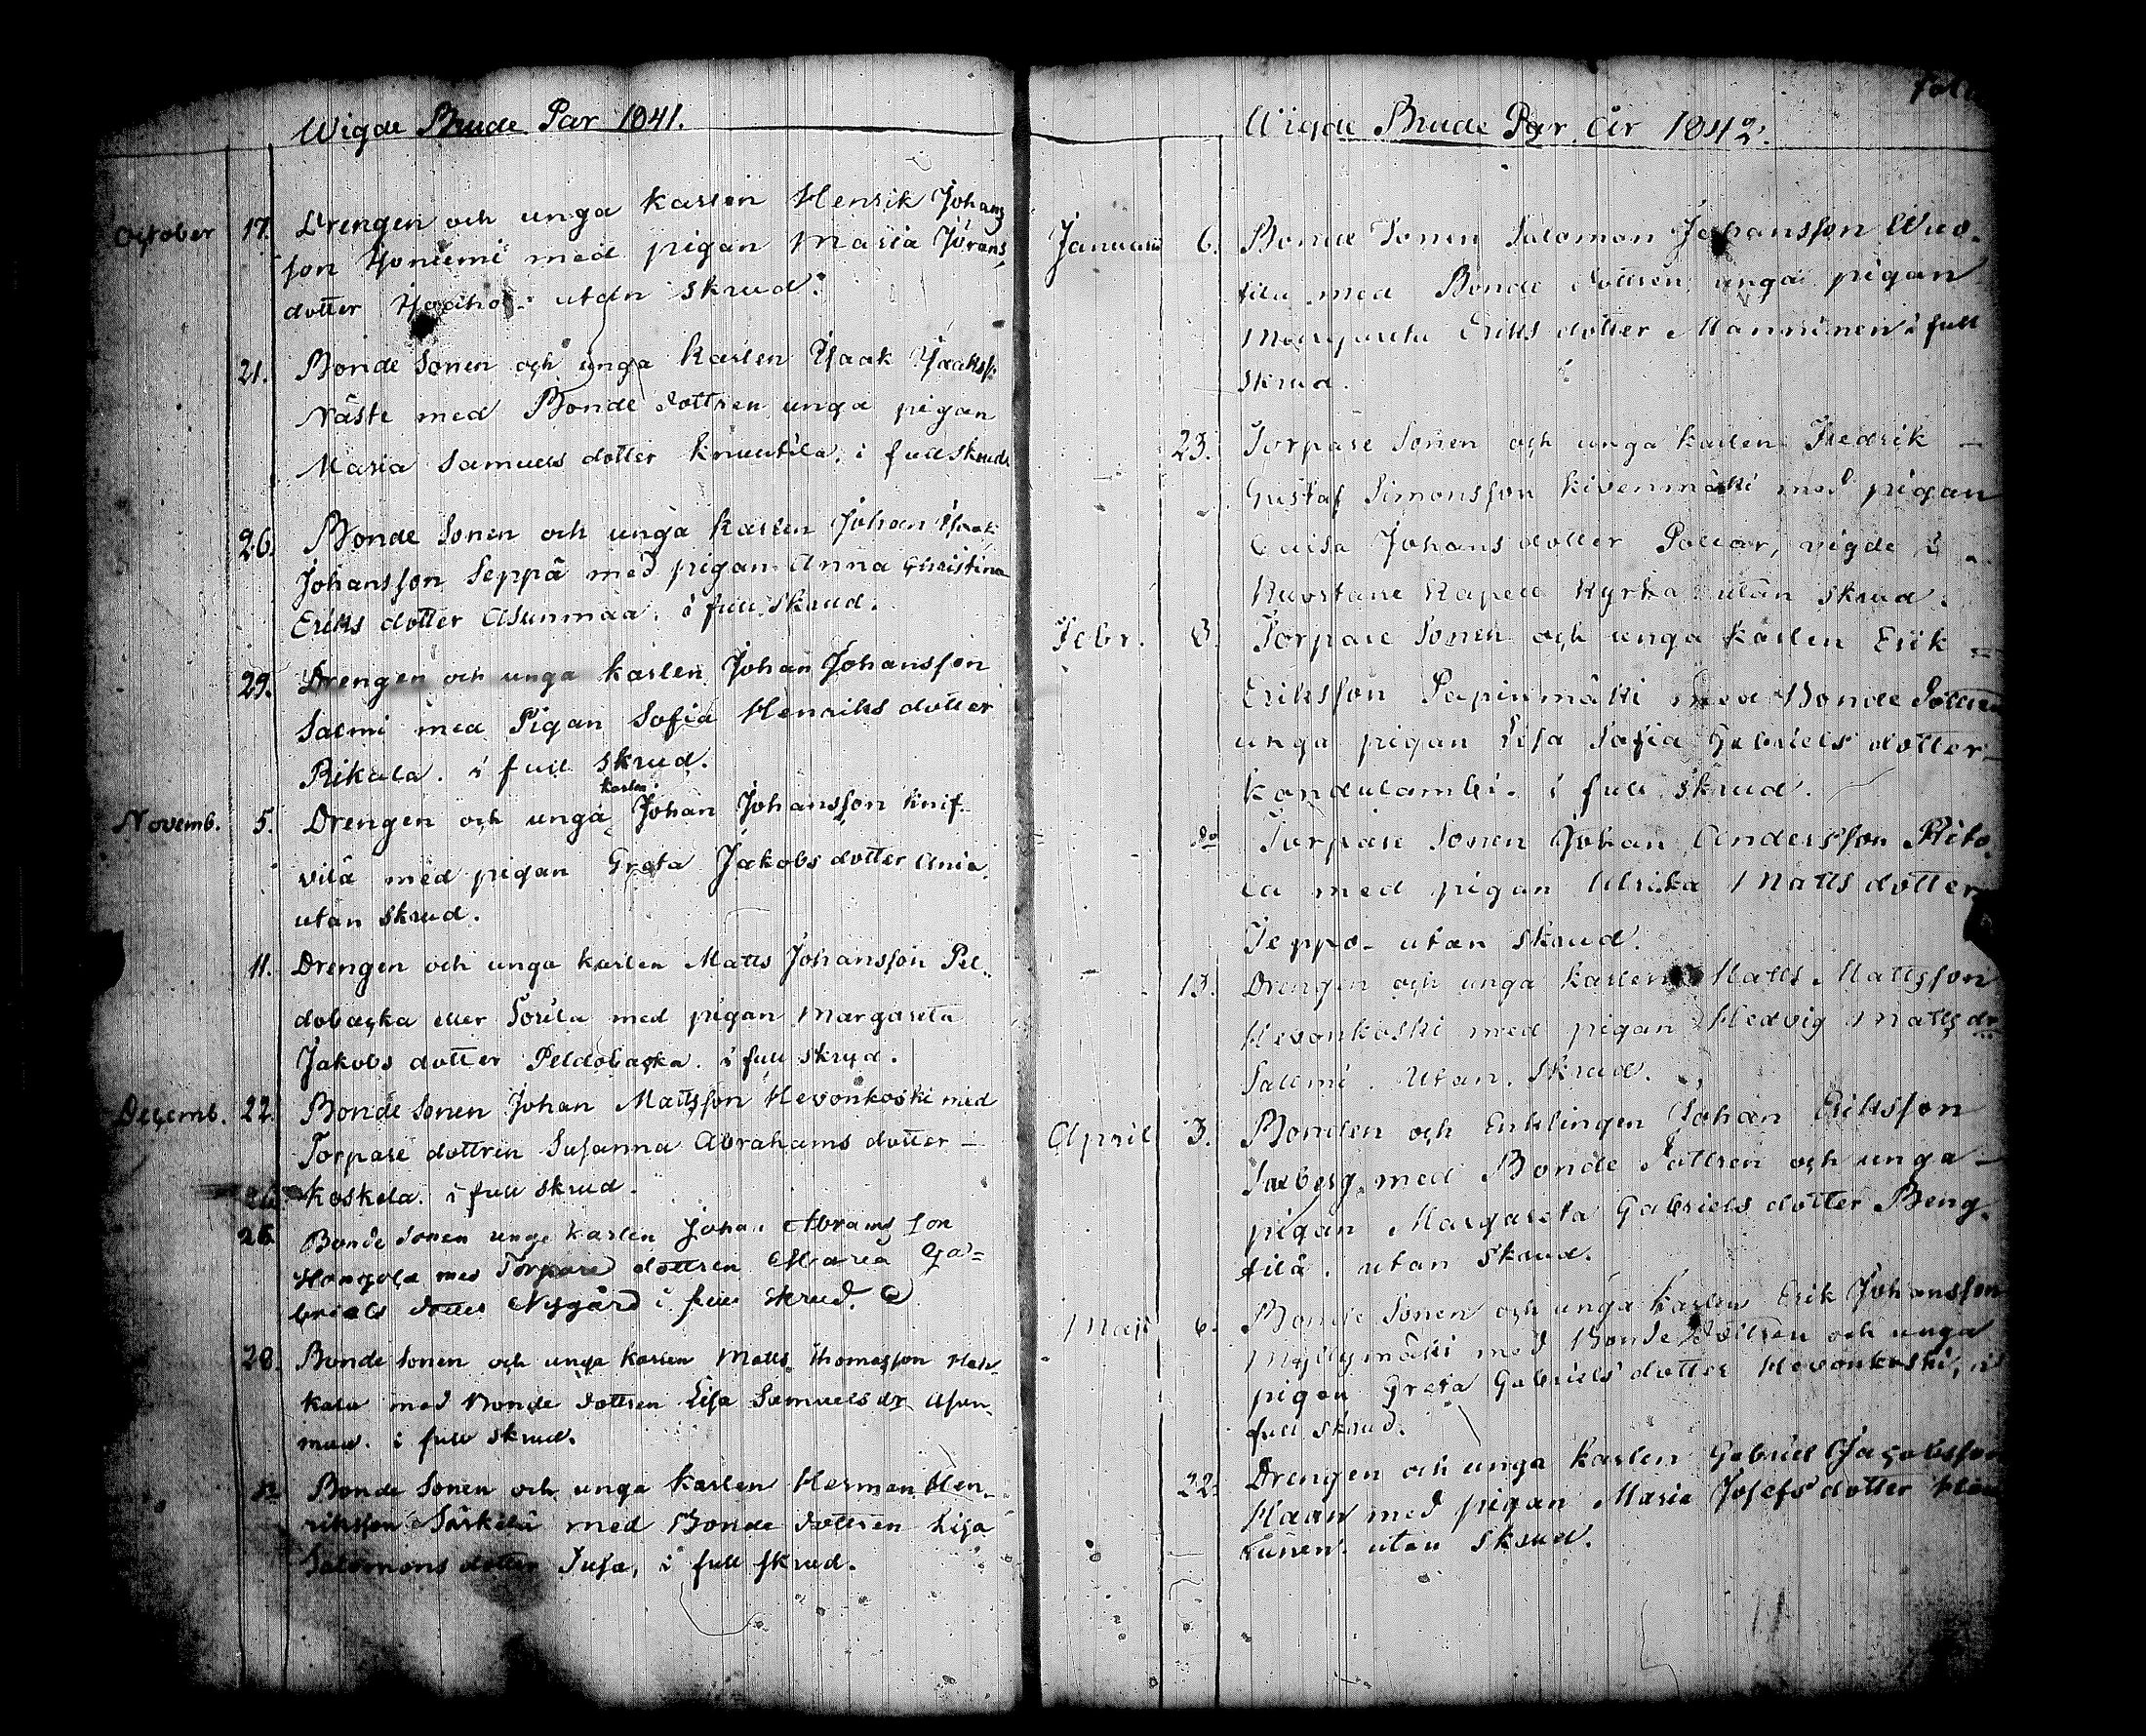 Wigde Brude Par 1841.
October 17. Drengen och unga karlen Henrik Johans
son Honiemi med pigan Maria Jörans
dotter utan skrud.
21. Bonde Sonen och unga karlen Isaak Isaakss.
Näste med Bonde dottren unga pigan
Maria Samuels dotter Knuutila, i full skrud
26. Bonde Sonen och unga karlen Johan Isaak
Johansson Seppä med pigan Anna Christina
Eriks dotter Asunmaa. i full skrud.
29. Drengen och unga karlen Johan Johansson
Salmi med Pigan Sofia Henriks dotter
Rikala. i full skrud.
karlen
Novemb. 5. Drengen och unga Johan Johansson Knif-
vilä med pigan Greta Jakobs dotter Ania.
utan skrud.
11. Drengen och unga karlen Matts Johansson Pel-
dobacka eller Sorila med pigan Margareta
Jakobs dotter Peldobacka. i full skrud.
Decemb. 22. Bonde Sonen Johan Mattsson Hevonkoski med
Torpare dottren Susanna Abrahams dotter –
26. Koskela. i full skrud.
26. Bonde Sonen unge karlen Johan Abrams son
Haapola med Torpare dottren Maria Ga=
briels dotter Nygård i full skrud.
28. Bonde Sonen och unga karlen Matts Thomasson Hau-
kala med Bonde dottren Lisa Samuels dr Asun-
maa. i full skrud.
do Bonde Sonen och unga karlen Herman Hen-
riksson Särkilä med Bonde dottren Lisa
Salomons dotter Jusa, i full skrud.
Wigde Brude Par år 1842.
Januarii 6. Bonde Sonen Salomon Johansson Wuo-
tila med Bonde dottren unga pigan
Margareta Eriks dotter Manninen i full
skrud.
23. Torpare Sonen och unga karlen Fredrik –
Gustaf Simonsson Kivenmäki med pigan
Caisa Johans dotter Pollar, vigde i
Kuortane Kapell Kyrka utan skrud.
Febr. 8. Torpare Sonen och unga karlen Erik –
Eriksson Papinmäki med Bonde Dottren
unga pigan Lisa Sofia Gabriels dotter –
Kandulambi. i full skrud.
do Torpare Sonen Johan Andersson Rito-
la med pigan Ulrika Matts dotter
Seppä – utan skrud.
13. Drengen och unga karlen Matts Mattsson
Hevonkoski med pigan Hedvig Matts dr
Sallmi. Utan skrud.
April 3. Bonden och Enklingen Johan Eriksson
Saxberg med Bonde Dottren och unga –
pigan Margareta Gabriels dotter Beng-
tilä. utan skrud.
Maji 6. Bonde Sonen och unga karlen Erik Johansson
Myllymäki med Bonde Dottren och unga
pigan Greta Gabriels dotter Hevonkoski, i
full skrud.
22. Drengen och unga karlen Gabriel Jacobsson
Haan med pigan Maria Josefs dotter
utan skrud.